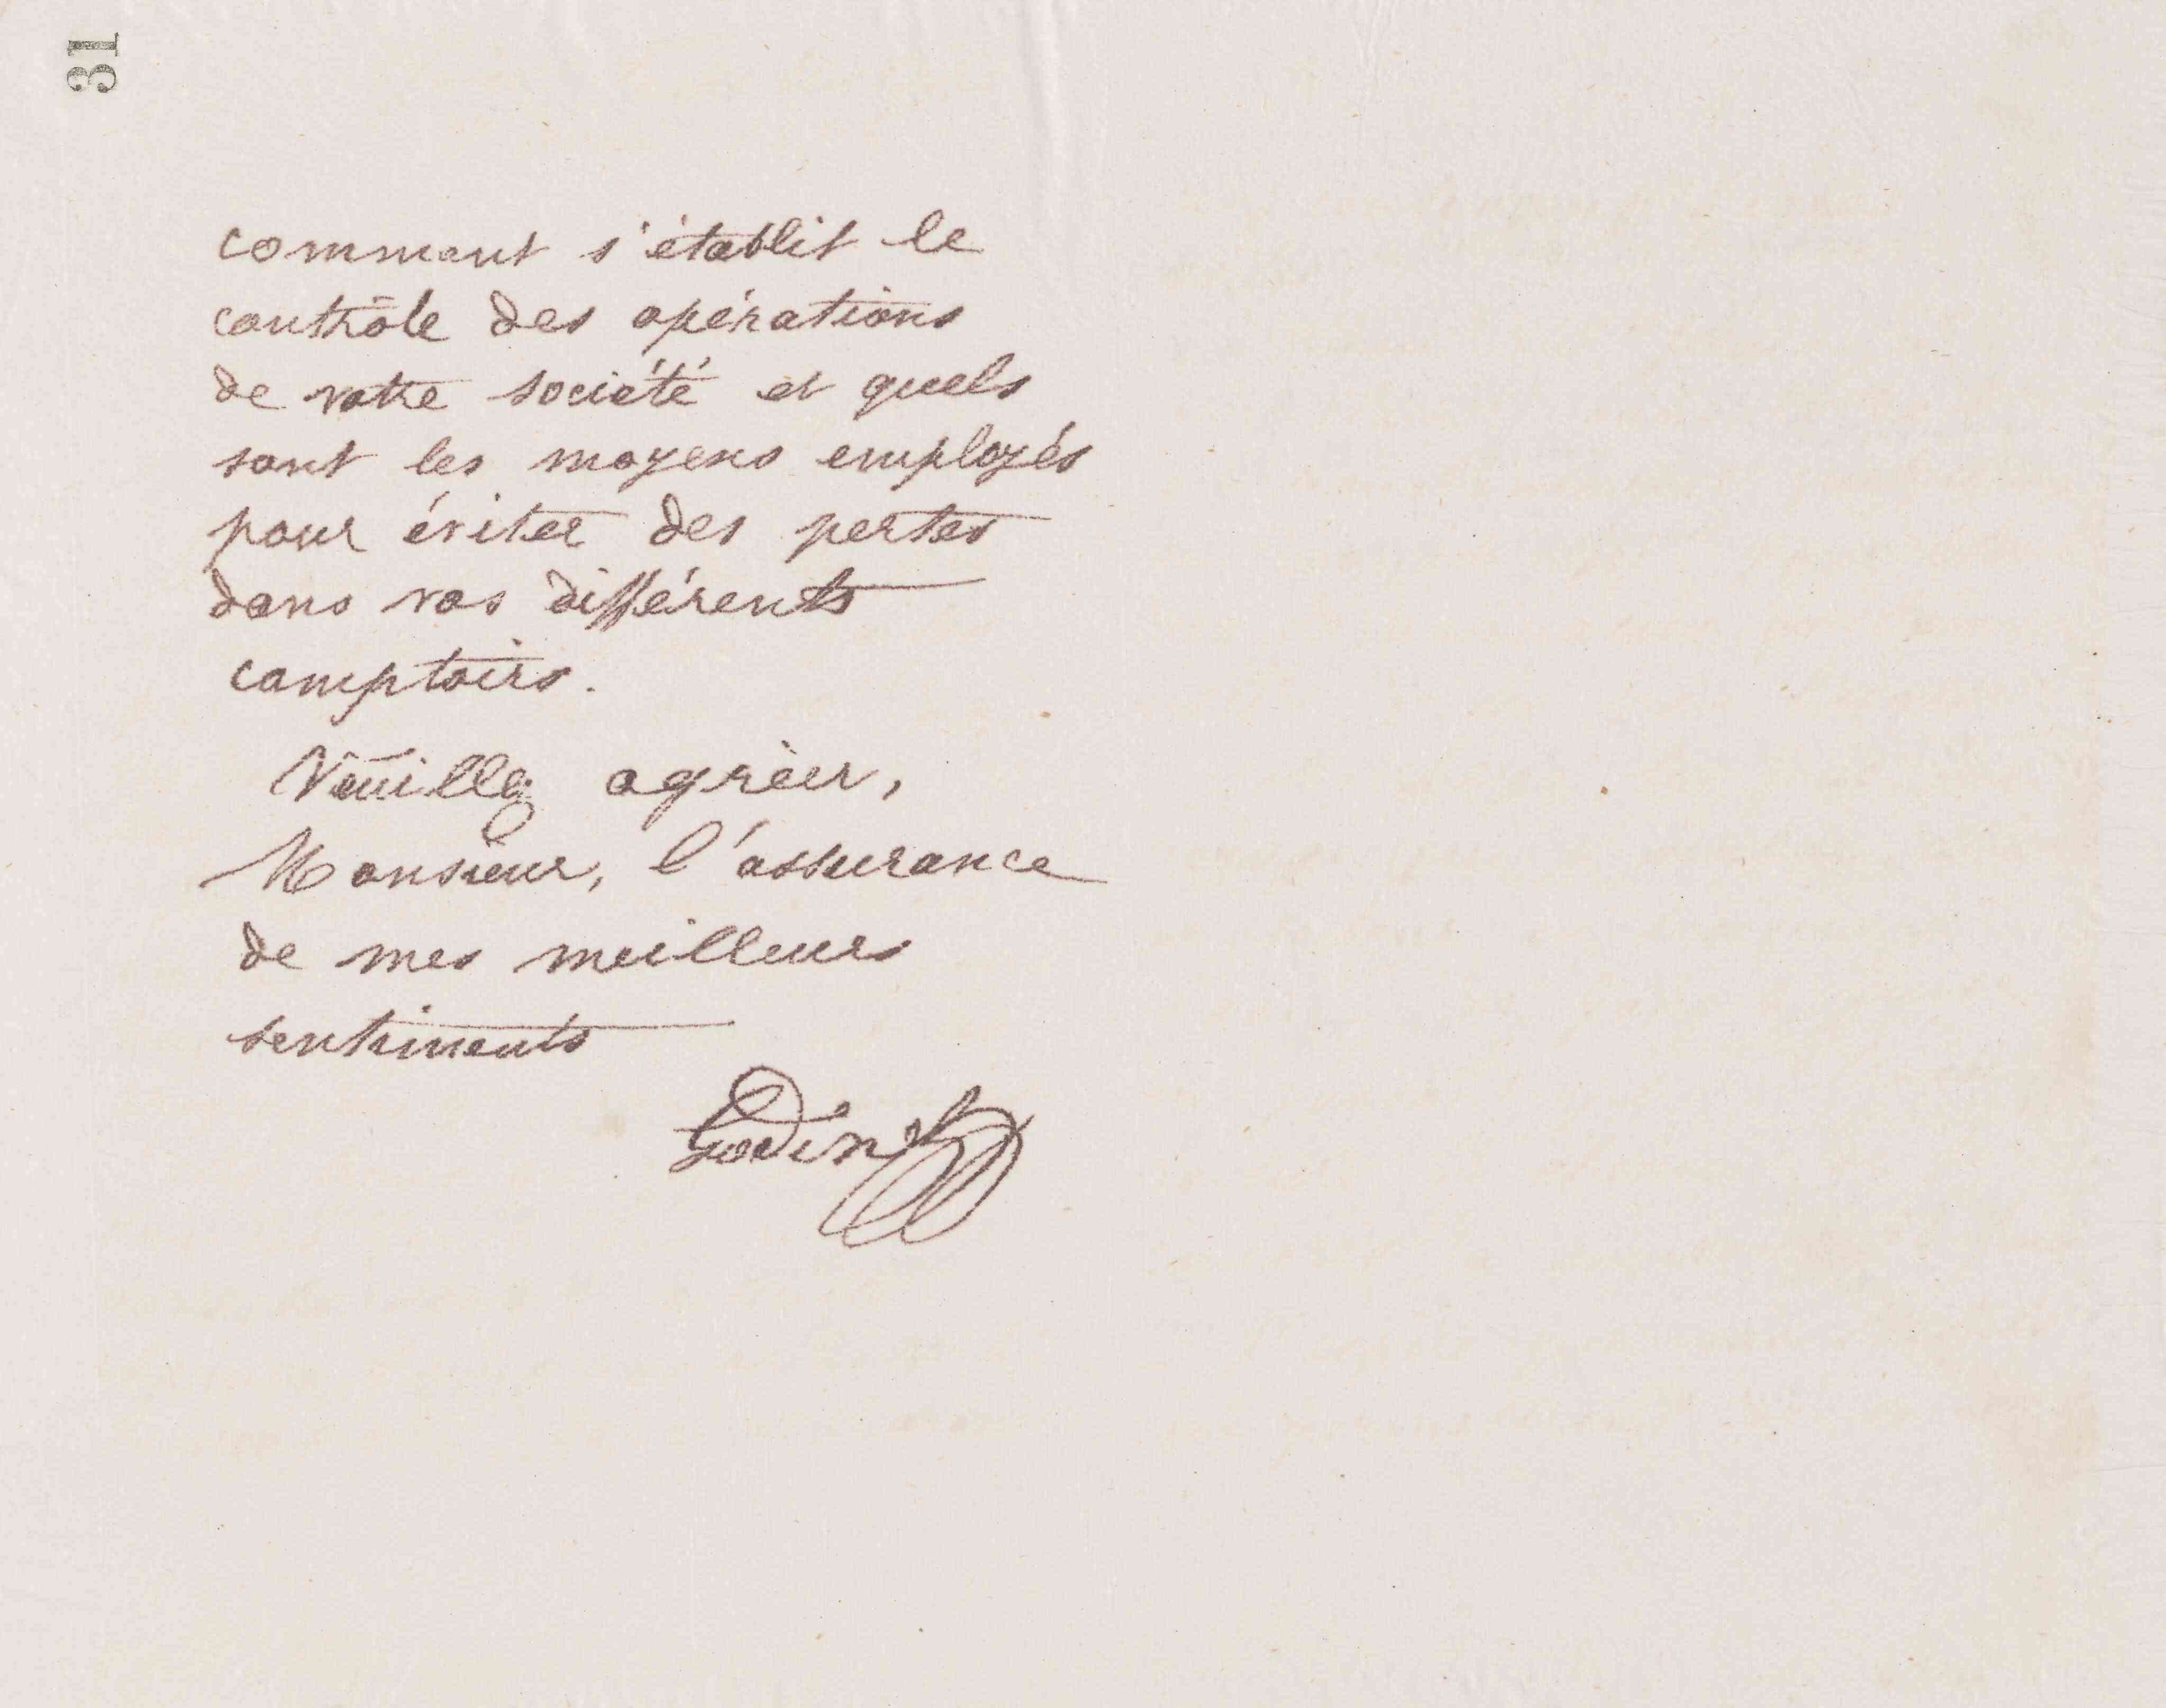 31
comment s'établit le
contrôle des opérations
de votre société et quels
sont les moyens employés
pour éviter des pertes
dans vos différents
comptoirs.
Veuillez agréer,
Monsieur, l'assurance
de mes meilleurs
sentiments
Godin